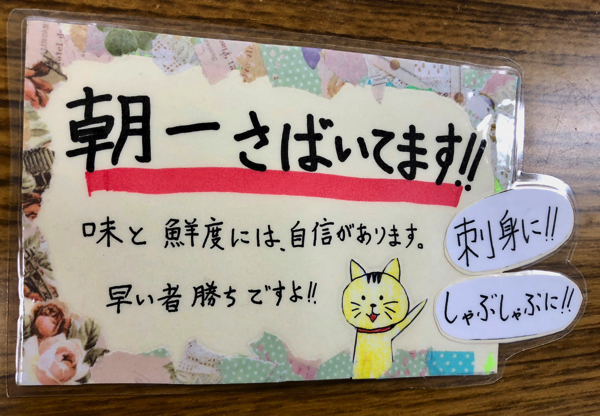 朝一さばいてます!!
味と鮮度には、自信があります。
早い者勝ちですよ!!
刺身に!!
しゃぶしゃぶに!!